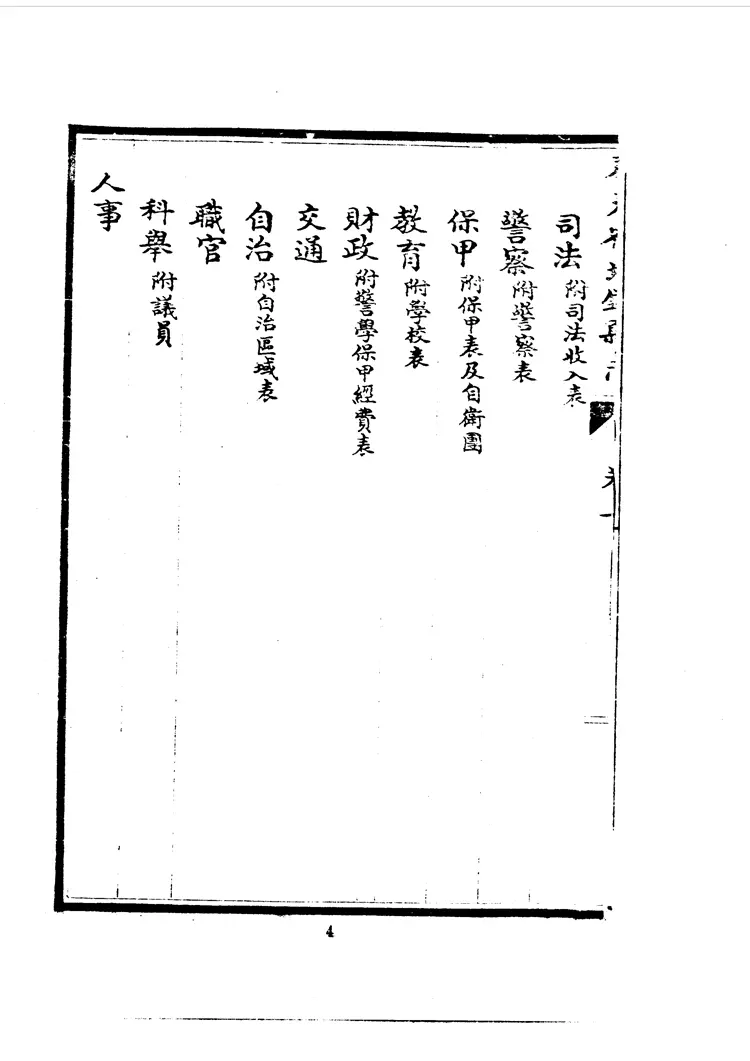 司法 附司法收入表
警察 附警察表
保甲 附保甲表及自衛團
教育 附學校表
財政 附警學保甲經費表
交通
自治 附自治區域表
職官
科舉 附議員
人事
4